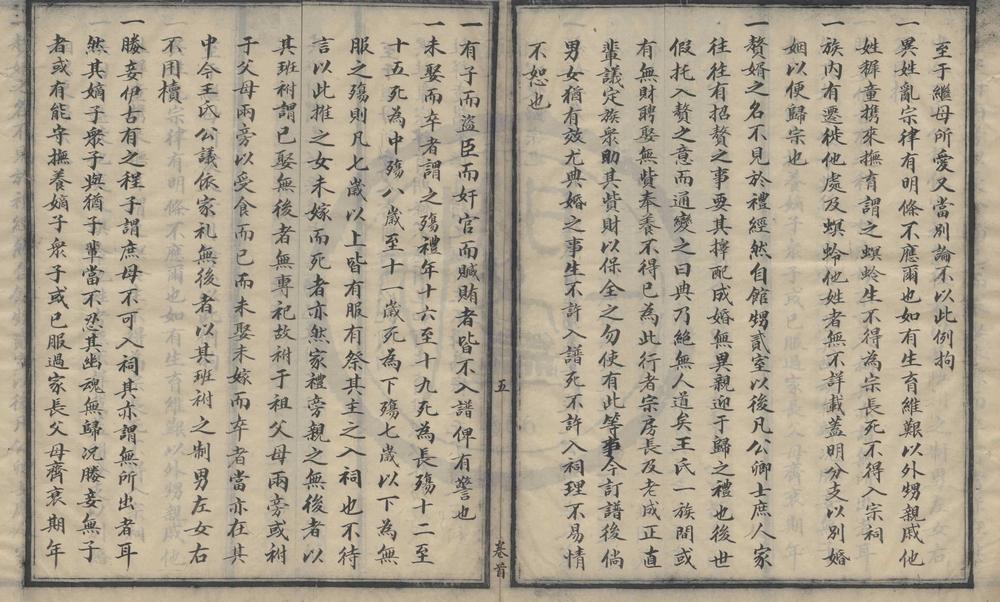 至于繼母所愛又當別論不以此例拘
一異姓亂宗律有明條不應爾也如有生育維艱以外甥親戚他
姓穉童携來撫育謂之螟蛉生不得為宗長死不得入宗祠
一族內有遷徙他處及螟蛉他姓者無不詳載蓋明分支以別婚
姻以便歸宗也
一贅婿之名不見於禮經然自館甥貳室以後凡公卿士庶人家
往往有招贅之事要其擇配成婚無異親迎于歸之禮也後世
假托入贅之意而通變之曰典乃絶無人道矣王氏一族間或
有無財聘娶無貲奉養不得已為此行者宗房長及老成正直
輩議定族衆助其貲財以保全之勿使有此等事今訂譜後倘
男女猶有效尤典婚之事生不許入譜死不許入祠理不易情
不恕也
五
卷首
一有子而盜臣而奸官而贓賄者皆不入譜俾有警也
一未娶而卒者謂之殤禮年十六至十九死為長殤十二至
十五死為中殤八歲至十一歲死為下殤七歲以下為無
服之殤則凡七歲以上皆有服有祭其主之入祠也不待
言以此推之女未嫁而死者亦然家禮旁親之無後者以
其班祔謂已娶無後者無專祀故祔于祖父母兩旁或祔
于父母兩旁以受食而已而未娶未嫁而卒者當亦在其
中今王氏公議依家礼無後者以其班祔之制男左女右
不用櫝
一媵妾伊古有之程子謂庶母不可入祠其亦謂無所出者耳
然其嫡子衆子與猶子輩當不忍其幽魂無歸况媵妾無子
者或有能守撫養嫡子衆子或已服過家長父母齊衰期年